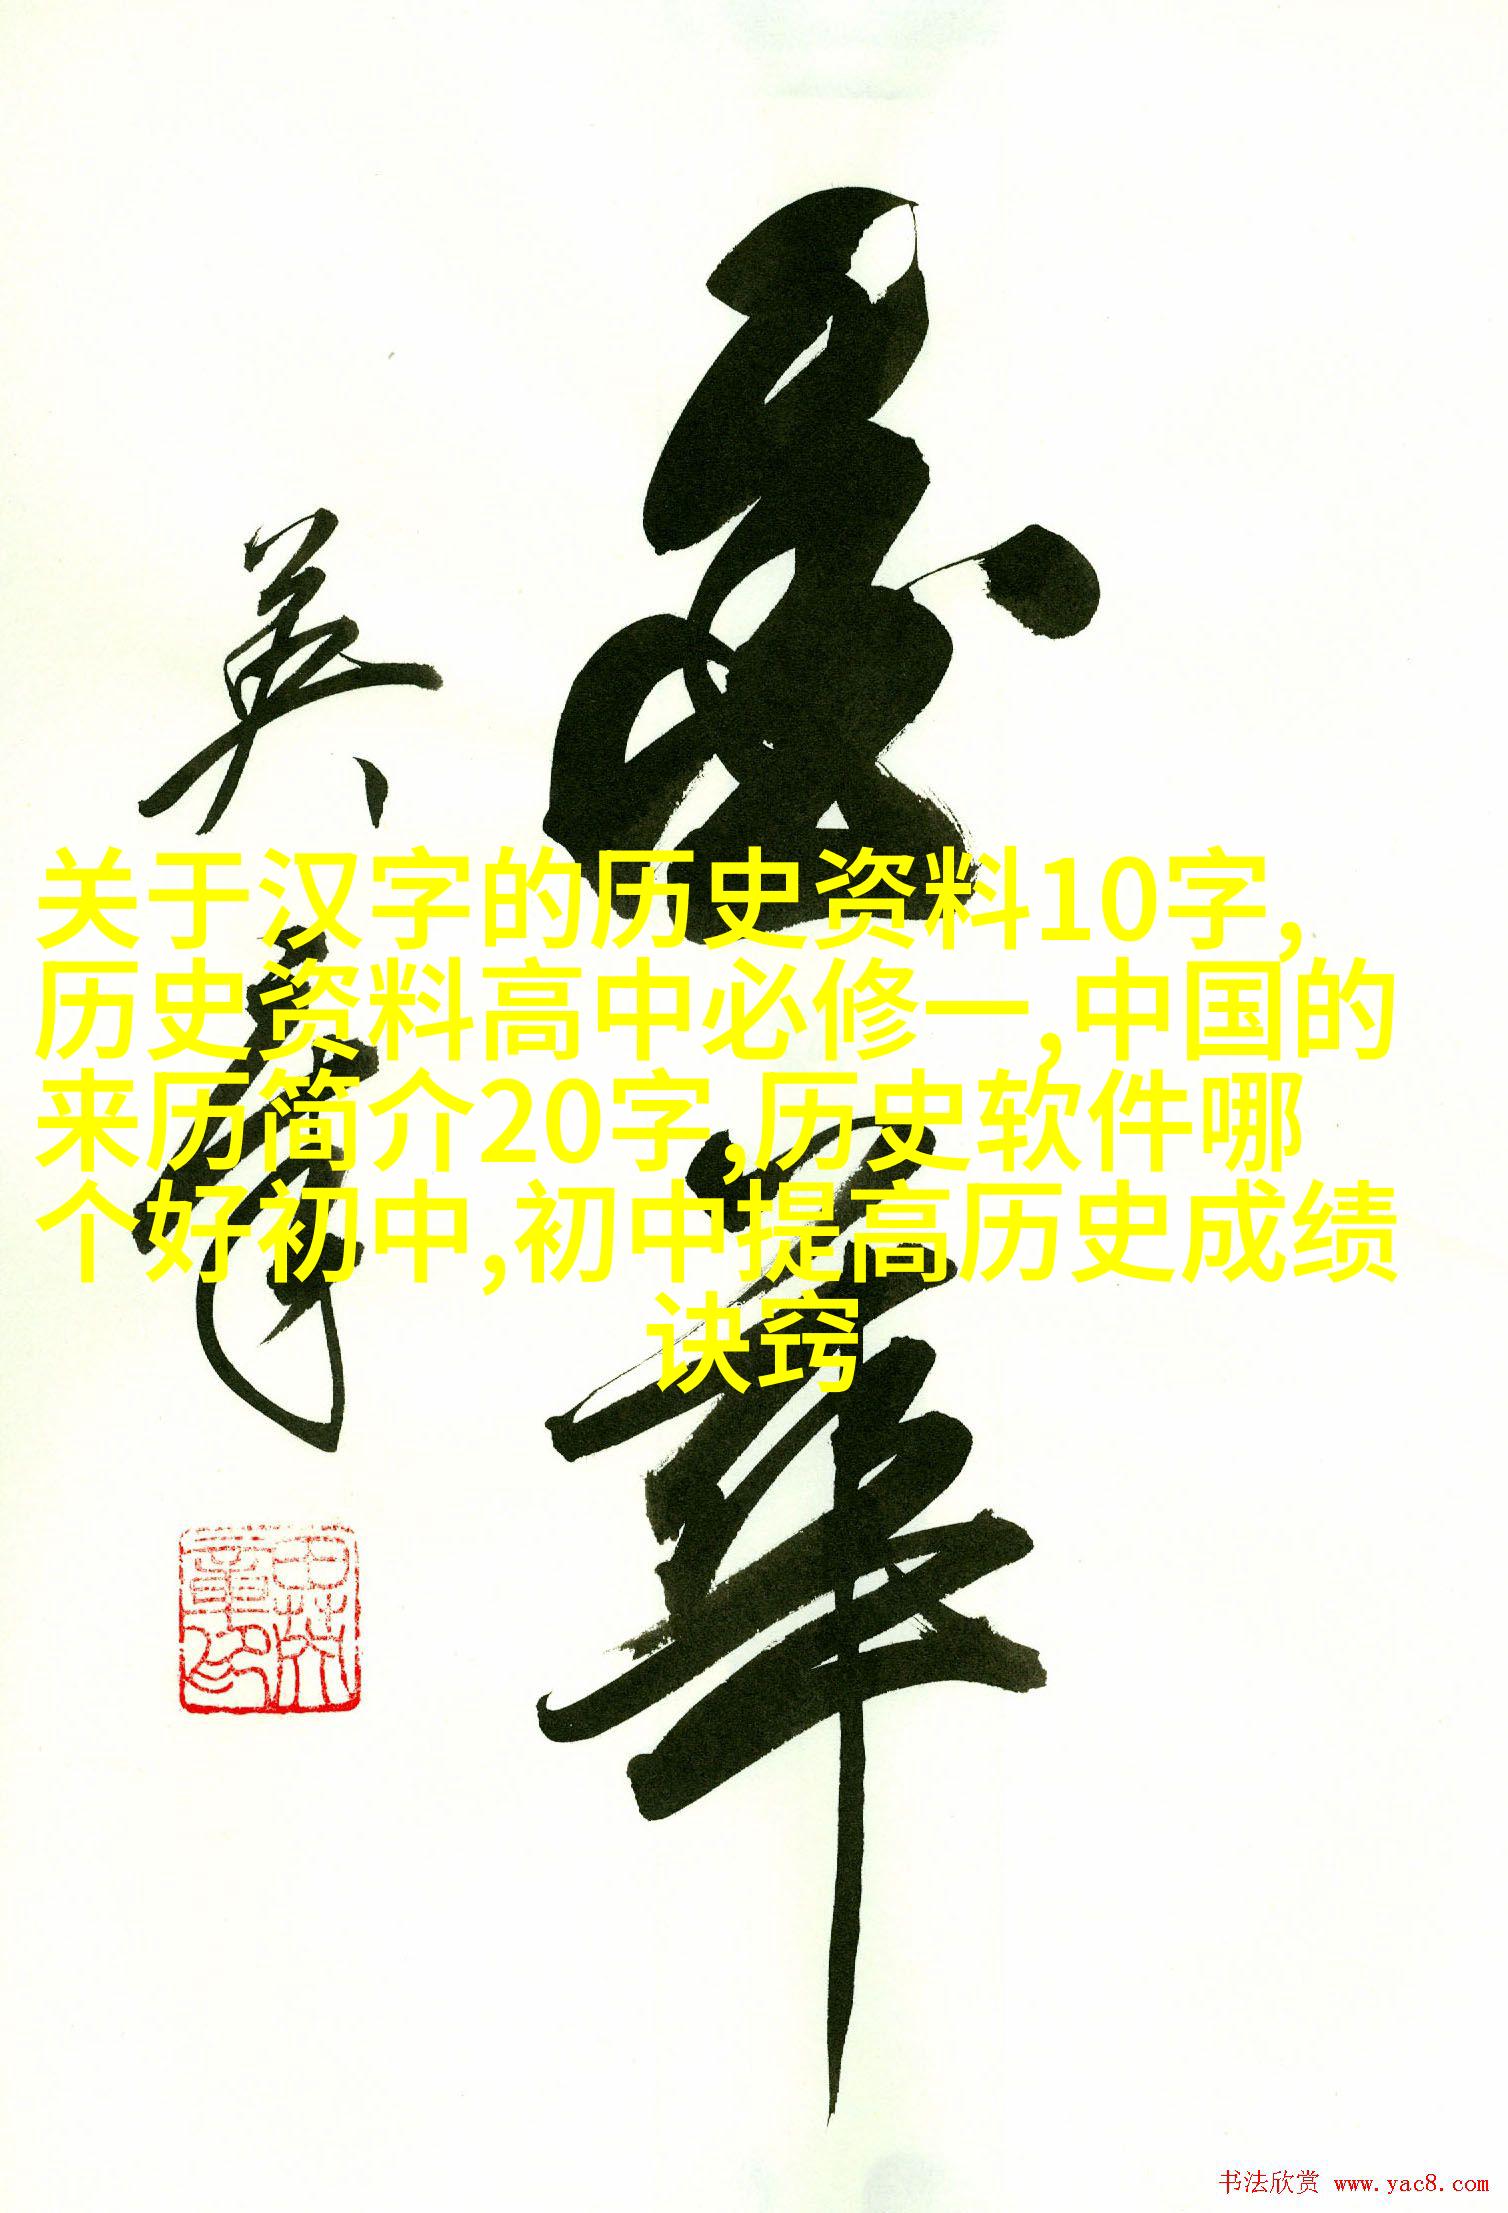 英
章
关于汉字的历史资料10字,
历史资料高中必修一,中国的
来历简介20字,历史软件哪
个好初中,初中提高历史成绩
诀窍
书法欣赏 www.yac8.com